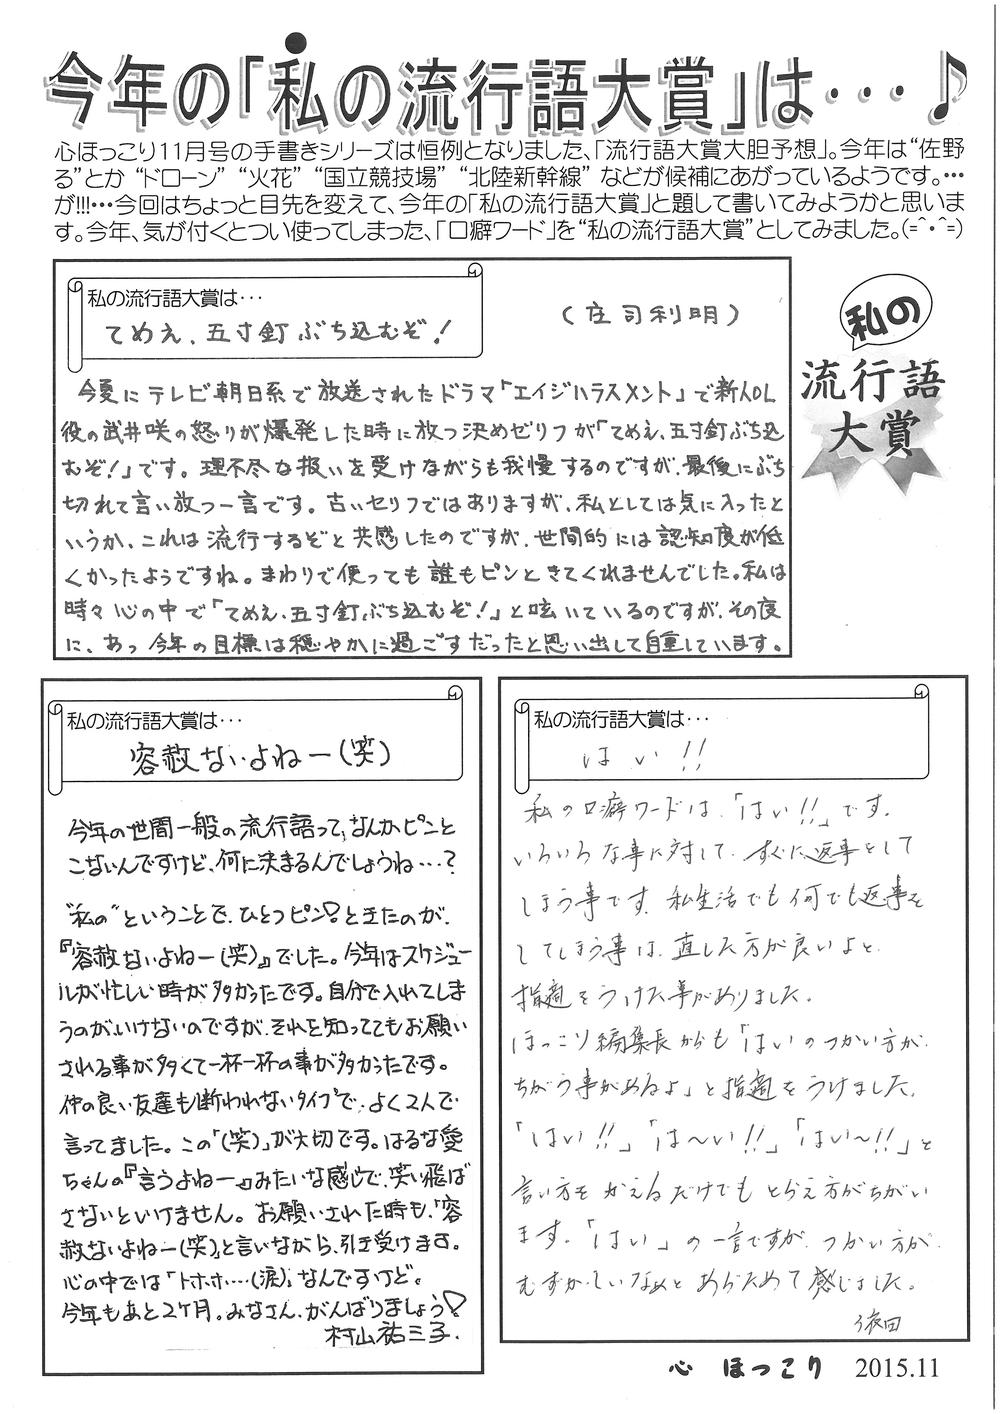 今年の「私の流行語大賞」は・・・♪
心ほっこり11月号の手書きシリーズは恒例となりました、「流行語大賞大胆予想」。今年は“佐野
る”とか “ドローン” “火花” “国立競技場” “北陸新幹線” などが候補にあがっているようです。…
が!!!…今回はちょっと目先を変えて、今年の「私の流行語大賞」と題して書いてみようかと思いま
す。今年、気が付くとつい使ってしまった、「口癖ワード」を“私の流行語大賞”としてみました。(=^・^=)
私の流行語大賞は・・・
てめえ、五寸釘ぶち込むぞ!
(庄司利明)
今夏にテレビ朝日系で放送されたドラマ「エイジハラスメント」で新人OL
役の武井咲の怒りが爆発した時に放つ決めゼリフが「てめえ、五寸釘ぶち込
むぞ!」です。理不尽な扱いを受けながらも我慢するのですが、最後にぶち
切れて言い放つ一言です。古いセリフではありますが、私としては気に入ったと
いうか、これは流行するぞと共感したのですが、世間的には認知度が低
くかったようですね。まわりで使っても誰もピンときてくれませんでした。私は
時々心の中で「てめえ、五寸釘ぶち込むぞ!」と呟いているのですが、その度
に、あっ今年の目標は穏やかに過ごすだったと思い出して自重しています。
私の
流行語
大賞
私の流行語大賞は・・・
容赦ないよねー(笑)
今年の世間一般の流行語って、なんかピンと
こないんですけど、何に決まるんでしょうね…?
“私の”ということで、ひとつピン!ときたのが、
『容赦ないよねー(笑)』でした。今年はスケジュー
ルが忙しい時が多かったです。自分で入れてしま
うのがいけないのですが、それを知っててもお願い
される事が多くて一杯一杯の事が多かったです。
仲の良い友達も断われないタイプで、よく2人で
言ってました。この「(笑)」が大切です。はるな愛
ちゃんの『言うよねー』みたいな感じで、笑い飛ば
さないといけません。お願いされた時も、「容
赦ないよねー(笑)」と言いながら、引き受けます。
心の中では「トホホ…(涙)」なんですけど。
今年もあと2ケ月。みなさん、がんばりましょう!
村山祐三子.
私の流行語大賞は・・・
はい!!
私の口癖ワードは、「はい!!」です。
いろいろな事に対して、すぐに返事をして
しまう事です。私生活でも何でも返事を
してしまう事は、直した方が良いよと、
指適をうけた事がありました。
ほっこり編集長からも「はいのつかい方が、
ちがう事があるよ」と指適をうけました。
「はい!!」「は～い!!」「はい～!!」と
言い方をかえるだけでもとらえ方がちがい
ます。「はい」の一言ですが、つかい方が、
むずかしいなぁとあらためて感じました。
依田
心 ほっこり 2015.11